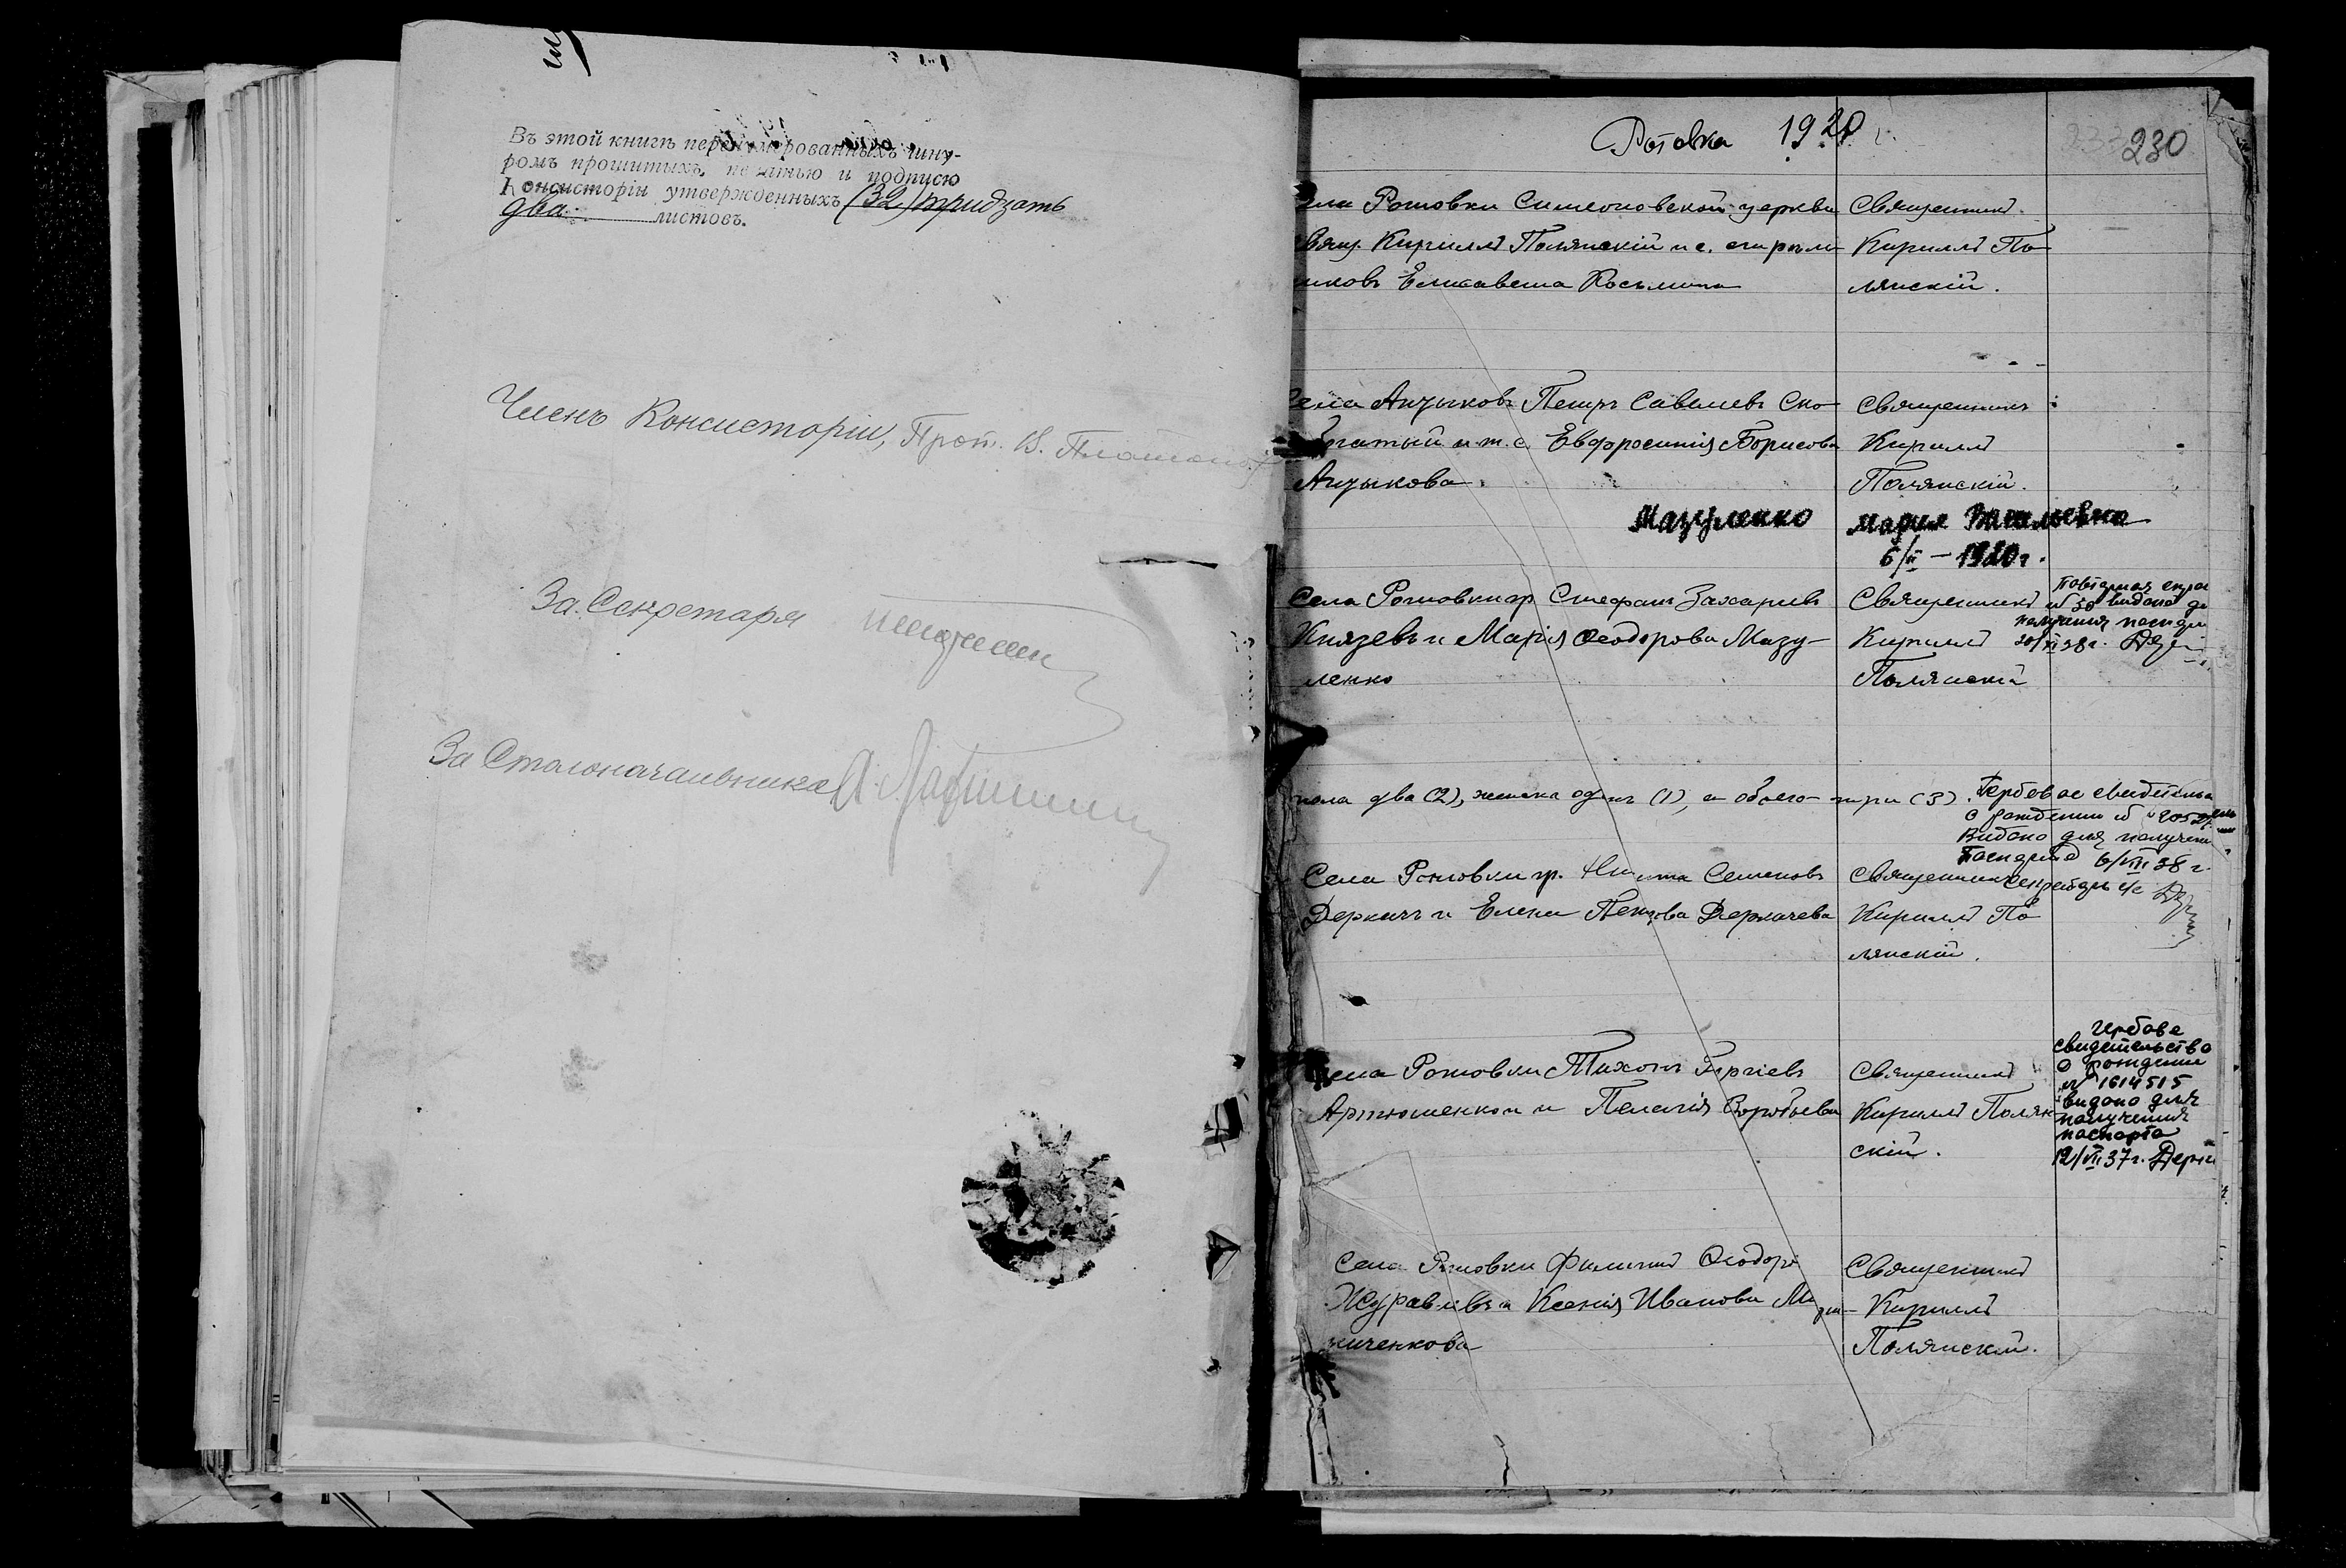 Въ этой книгѣ перенумерованныхъ шну-
ромъ прошитыхъ, печатью и подписю
Консисторіи утвержденныхъ (32) тридзать
два листовъ.
Членъ Консисторіи, Прот. В. Платонов
За Секретаря
За Столоначальника А.
Ротовка 1920 г.
230
Села Ротовки Симеоновской церкви
Свящ. Кирилл Полянскій и с.
Елисавета Косьмина
Священник
Кирилл По-
лянскій.
Села Анзыков Петръ Савелевъ Ско-
богатый и т. с. Евфросинія Борисова
Анзыкова.
Священникъ
Кирилл
Полянскій.
Мазуленко Мария Васильевна
6/II - 1920 г.
Села Ротовки гр Стефанъ Захариевъ
Князевъ и Марія Феодорова Мазу-
ленко
Священник
Кирилл
Полянскій
Повторная
№ 50 видана
получения
38 г.
пола два (2), женска одинъ (1), а обоего три (3).
Гербовое свидетельс
о рождении №
Видано для получени
Паспорта 6/VIII 38 г.
Секретарь с/с
Села Ротовки гр. Никита Семеновъ
Деркачъ и Елена Петрова Деркачева
Священник
Кирилл По
лянскій.
Села Ротовки Тихонъ Сергіевъ
Артюшенко и Пелагія Воробьева
Священник
Кирилл Полян
скій.
Гербове
свидетельство
о рождении
№ 1614515
видано для
получения
паспорта
12/VII 37 г.
Села Ротовки Филиппъ Феодоро
Журавлевъ и Ксенія Иванова
ниченкова
Священник
Кирилл
Полянскій.